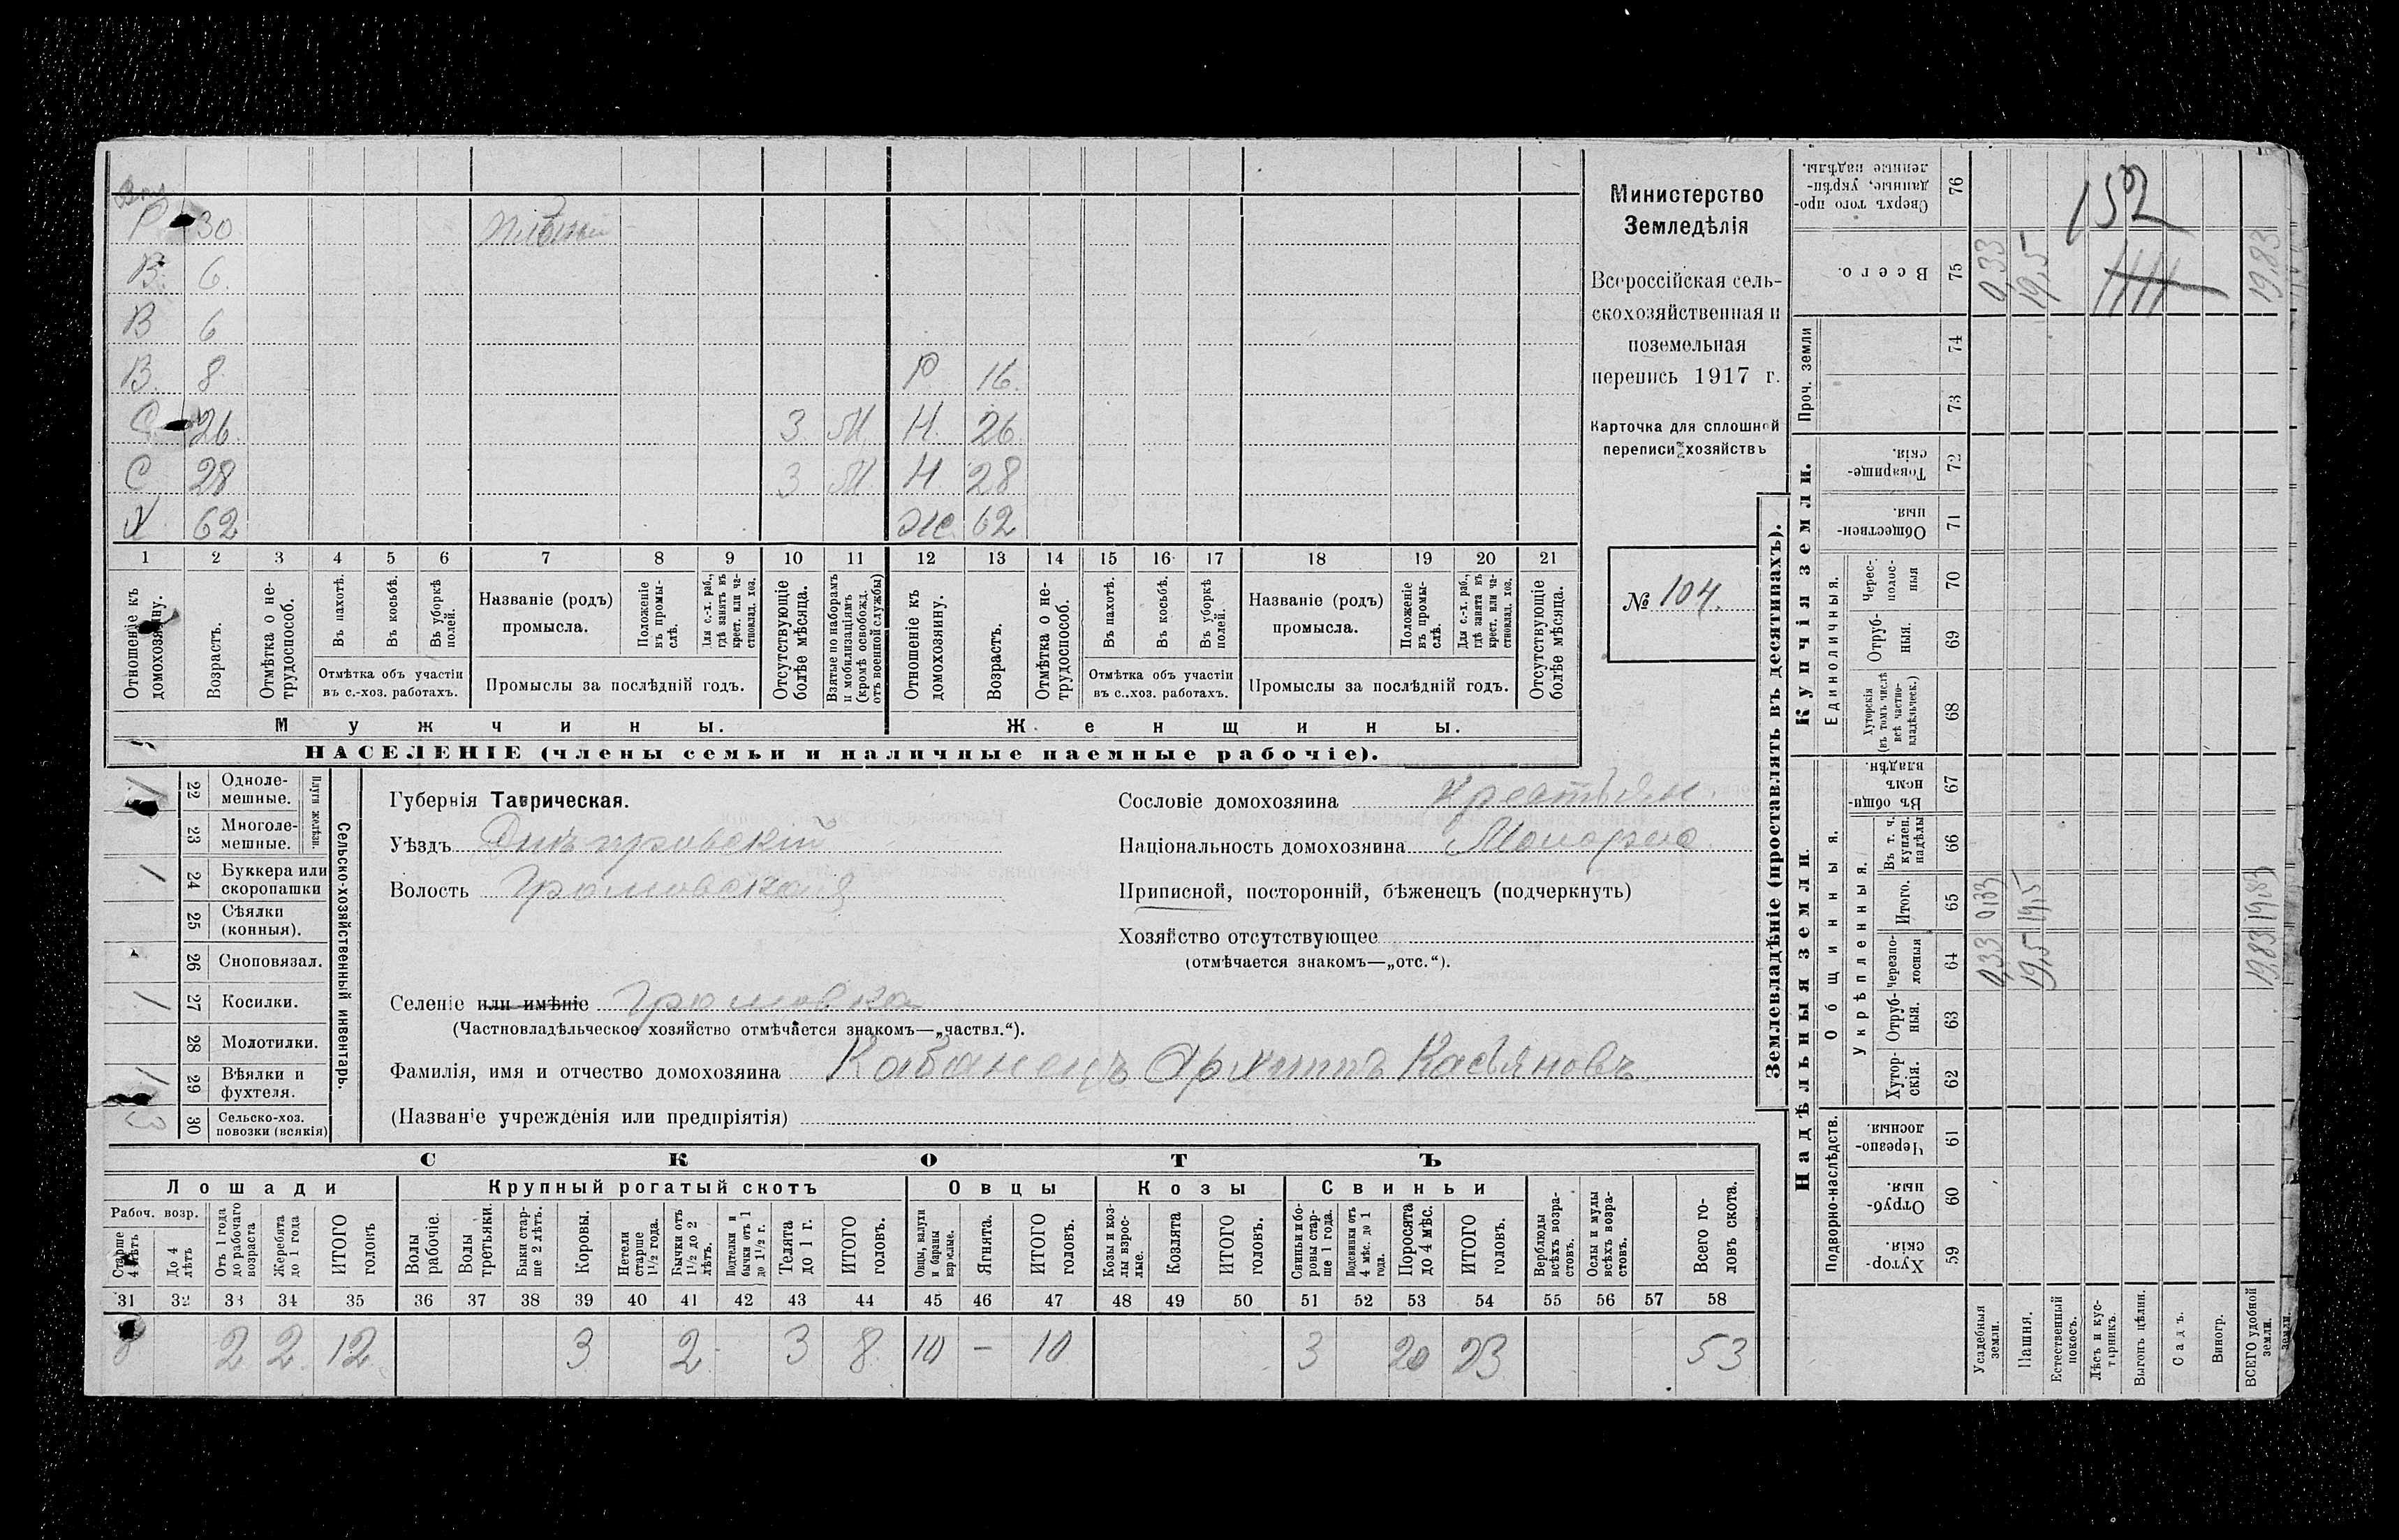 Р 30 Плѣнный
В. 6.
В 6
В. 8 Р 16.
С. 26. 3 М. Н. 26
С 28 3 М Н 28
Х 62 Же. 62
1 2 3 4 5 6 7 8 9 10 11 12 13 14 15 16 17 18 19 20 21
Отношеніе къ домохозяину.
Возрастъ.
Отмѣтка о не-трудоспособ.
Въ пахотѣ.
Въ косьбѣ.
Въ уборкѣ полей.
Отмѣтка объ участіи въ с.-хоз. работахъ.
Названіе (родъ) промысла.
Положеніе въ промы-слѣ.
Для с.-х. раб., гдѣ занятъ въ крест. или ча-стновлад. хоз.
Промыслы за послѣдній годъ.
Отсутствующіе болѣе мѣсяца.
Взятые по наборамъ и мобилизаціямъ (кромѣ освобожд. отъ военной службы)
Отношеніе къ домохозяину.
Возрастъ.
Отмѣтка о не-трудоспособ.
Въ пахотѣ.
Въ косьбѣ.
Въ уборкѣ полей.
Отмѣтка объ участіи въ с..хоз. работахъ.
Названіе (родъ) промысла.
Положеніе въ промы-слѣ.
Для с.-х. раб., гдѣ занята въ крест. или ча-стновлад. хоз.
Промыслы за послѣдній годъ.
Отсутствующіе болѣе мѣсяца.
Мужчины. Женщины.
НАСЕЛЕНІЕ (члены семьи и наличные наемные рабочіе).
Министерство
Земледѣлія
Всероссійская сель-
скохозяйственная и
поземельная
перепись 1917 г.
Карточка для сплошной
переписи хозяйствъ
№ 104.
22 Одноле-мешные. 1
23 Многоле-мешные.
Плуги желѣзн.
24 Буккера или скоропашки 1
25 Сѣялки (конныя).
26 Сноповязал.
27 Косилки. 1
28 Молотилки.
29 Вѣялки и фухтеля. 1
30 Сельско-хоз. повозки (всякія) 3
Сельско-хозяйственный инвентарь.
Губернія Таврическая.
Уѣздъ Днѣпровскій
Волость Громовская
Сословіе домохозяина крестьян.
Національность домохозяина Малорос
Приписной, посторонній, бѣженецъ (подчеркнуть)
Хозяйство отсутствующее
(отмѣчается знакомъ—„отс.“).
Селеніе или имѣніе Громовка
(Частновладѣльческое хозяйство отмѣчается знакомъ—„частвл.“).
Фамилія, имя и отчество домохозяина Кабанецъ Архиппъ Касьяновъ
(Названіе учрежденія или предпріятія)
СКОТЪ
Лошади Крупный рогатый скотъ Овцы Козы Свиньи
Рабоч. возр.
Старше 4 лѣтъ
До 4 лѣтъ
Отъ 1 года до рабочаго возраста
Жеребята до 1 года
ИТОГО головъ
Волы рабочіе.
Волы третьяки.
Быки стар-ше 2 лѣтъ.
Коровы.
Нетели старше 1½ года.
Бычки отъ 1½ до 2 лѣтъ.
Подтелки и бычки отъ 1 до 1½ г.
Телята до 1 г.
ИТОГО головъ.
Овцы, валухи и бараны взрослые.
Ягнята.
ИТОГО головъ.
Козы и коз-лы взрос-лые.
Козлята
ИТОГО головъ.
Свиньи и бо-ровы стар-ше 1 года.
Подсвинки отъ 4 мѣс. до 1 года.
Поросята до 4 мѣс.
ИТОГО головъ.
Верблюды всѣхъ возра-стовъ.
Ослы и мулы всѣхъ возра-стовъ.
Всего го-ловъ скота.
31 32 33 34 35 36 37 38 39 40 41 42 43 44 45 46 47 48 49 50 51 52 53 54 55 56 57 58
8 2 2 12 3 2 3 8 10 — 10 3 20 23 53
Землевладѣніе (проставлять въ десятинахъ).
Надѣльныя земли. Купчія земли. Проч. земли
Подворно-наслѣдств. Общинныя. Единоличныя.
Укрѣпленныя.
59 Хутор-скія.
60 Отруб-ныя.
61 Черезпо-лосныя.
62 Хутор-скія.
63 Отруб-ныя.
64 Черезпо-лосныя 0,33 19,5 19,83
65 Итого. 0,33 19,5 19,83
66 Въ т. ч. куплен. надѣлы
67 Въ общин-номъ владѣн.
68 Хуторскія (въ томъ числѣ всѣ частно-владѣльческ.)
69 Отруб-ныя.
70 Черес-полос-ныя
71 Обществен-ныя.
72 Товарище-скія.
73
74
75 Всего. 0,33 19,5 19,83
76 Сверхъ того про-данные, укрѣп-ленные надѣлы.
152
Усадебныя земли.
Пашня.
Естественный покосъ.
Лѣсъ и кус-тарникъ.
Выгонъ цѣлин.
Садъ.
Виногр.
ВСЕГО удобной земли.
земли.